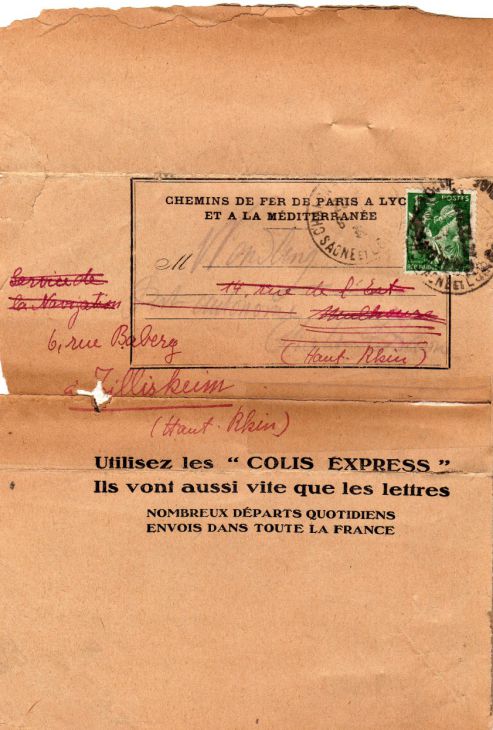 CHEMINS DE FER DE PARIS A LYO
ET A LA MÉDITERRANÉE
POSTES
M
Service de
la Navigation
14, rue de l'Est
Mulhouse
(Haut-Rhin)
6, rue Baberg
à Zillisheim
(Haut-Rhin)
Utilisez les "COLIS EXPRESS"
Ils vont aussi vite que les lettres
NOMBREUX DÉPARTS QUOTIDIENS
ENVOIS DANS TOUTE LA FRANCE